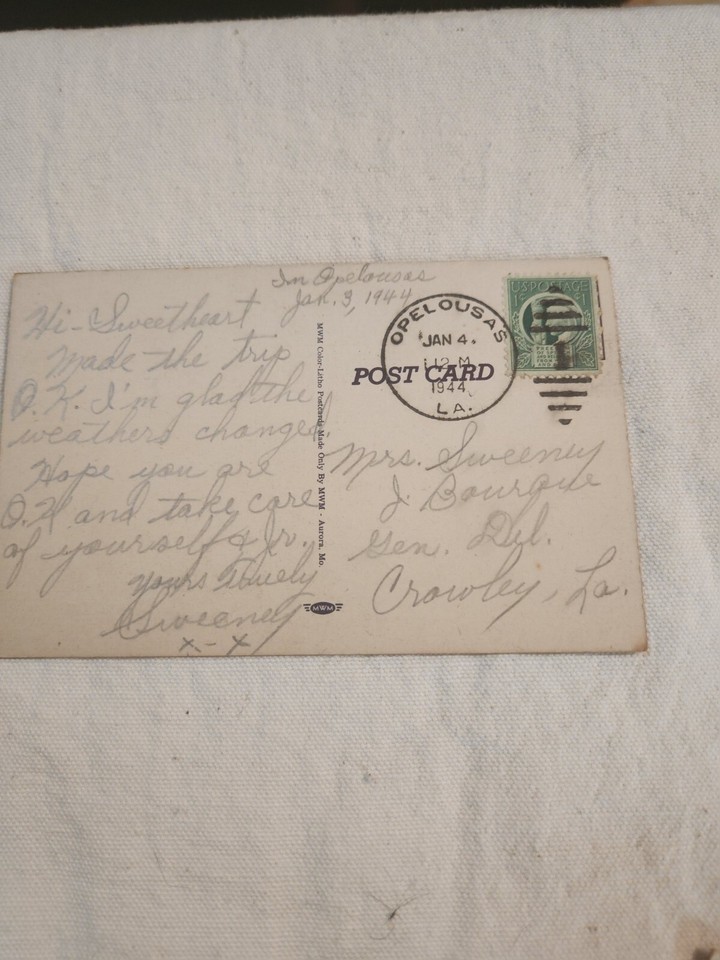 In Opelousas
Jan. 3, 1944
Hi-Sweetheart
Made the trip
O.K. I'm glad the
weathers changed.
Hope you are
O.K and take care
of yourself & Jr.
Yours Truely
Sweeney
x-x
MWM Color-Litho Postcards Made Only By MWM - Aurora, Mo.
MWM
POST CARD
OPELOUSAS
JAN 4.
12 M
1944
LA.
U.S. POSTAGE
1
Mrs. Sweeney
J. Bourque
Gen. Del.
Crowley, La.